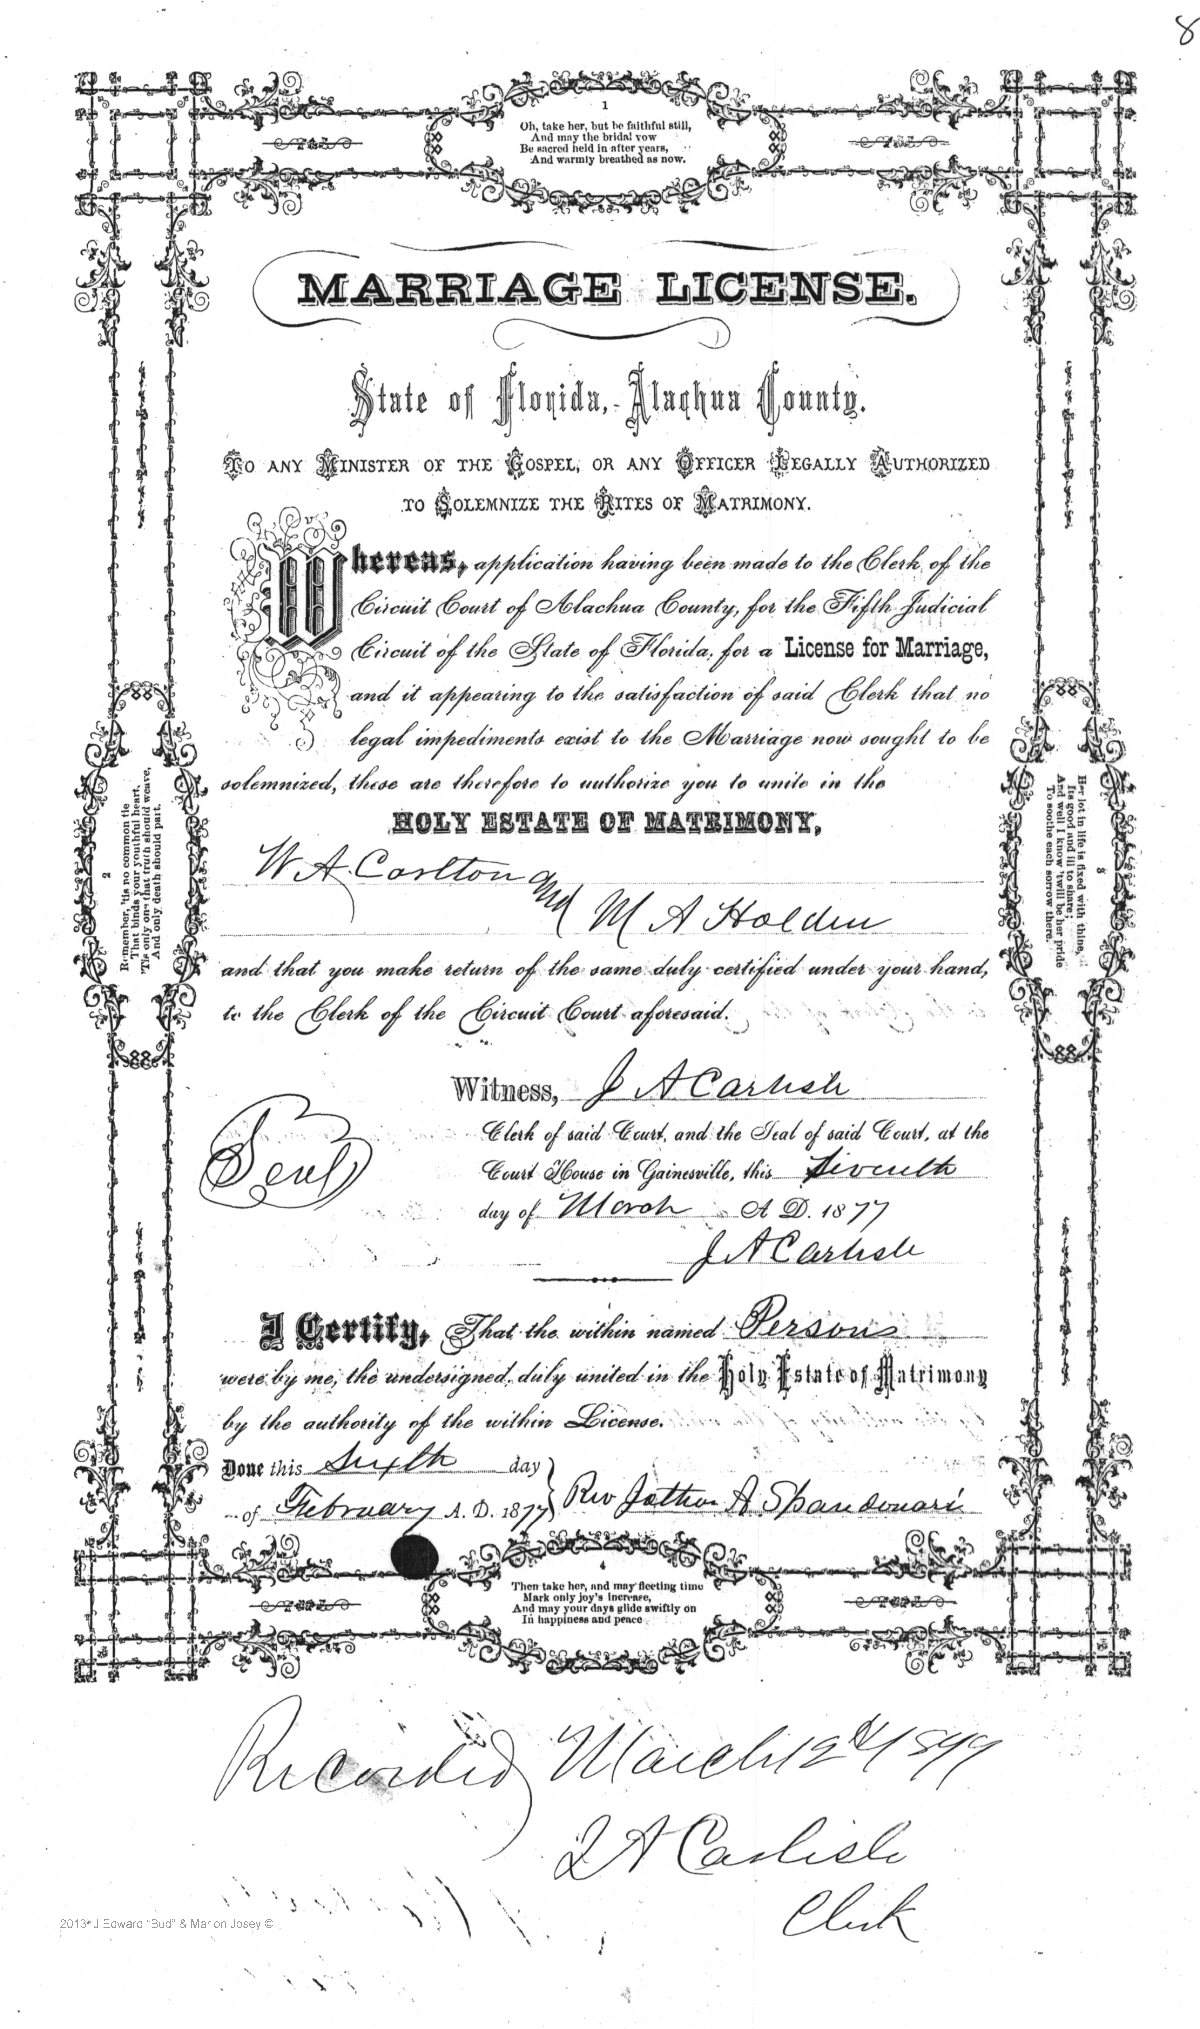 8
1
Oh, take her, but be faithful still,
And may the bridal vow
Be sacred held in after years,
And warmly breathed as now.
MARRIAGE LICENSE.
State of Florida, Alachua County.
TO ANY MINISTER OF THE GOSPEL, OR ANY OFFICER LEGALLY AUTHORIZED
TO SOLEMNIZE THE RITES OF MATRIMONY.
Whereas, application having been made to the Clerk of the
Circuit Court of Alachua County, for the Fifth Judicial
Circuit of the State of Florida, for a License for Marriage,
and it appearing to the satisfaction of said Clerk that no
legal impediments exist to the Marriage now sought to be
solemnized, these are therefore to authorize you to unite in the
HOLY ESTATE OF MATRIMONY,
W A Carlton and
M A Holden
and that you make return of the same duly certified under your hand,
to the Clerk of the Circuit Court aforesaid.
Witness, J A Carlisle
Clerk of said Court, and the Seal of said Court, at the
Court House in Gainesville, this Seventh
day of March A D. 1877
J A Carlisle
Seal
I Certify, That the within named Persons
were by me, the undersigned, duly united in the Holy Estate of Matrimony
by the authority of the within License.
Done this Sixth day
of February A. D. 1877
Rev A.
2
Remember, 'tis no common tie
That binds your youthful heart,
'Tis one that only truth should weave,
And only death should part.
3
Her lot in life is fixed with thine,
Its good and ill to share;
And well I know 'twill be her pride
To soothe each sorrow there.
4
Then take her, and may fleeting time
Mark only joy's increase,
And may your days glide swiftly on
In happiness and peace
Recorded March 12th 1877
J A Carlisle
Clerk
2013 J Edward "Bud" & Marion Josey ©